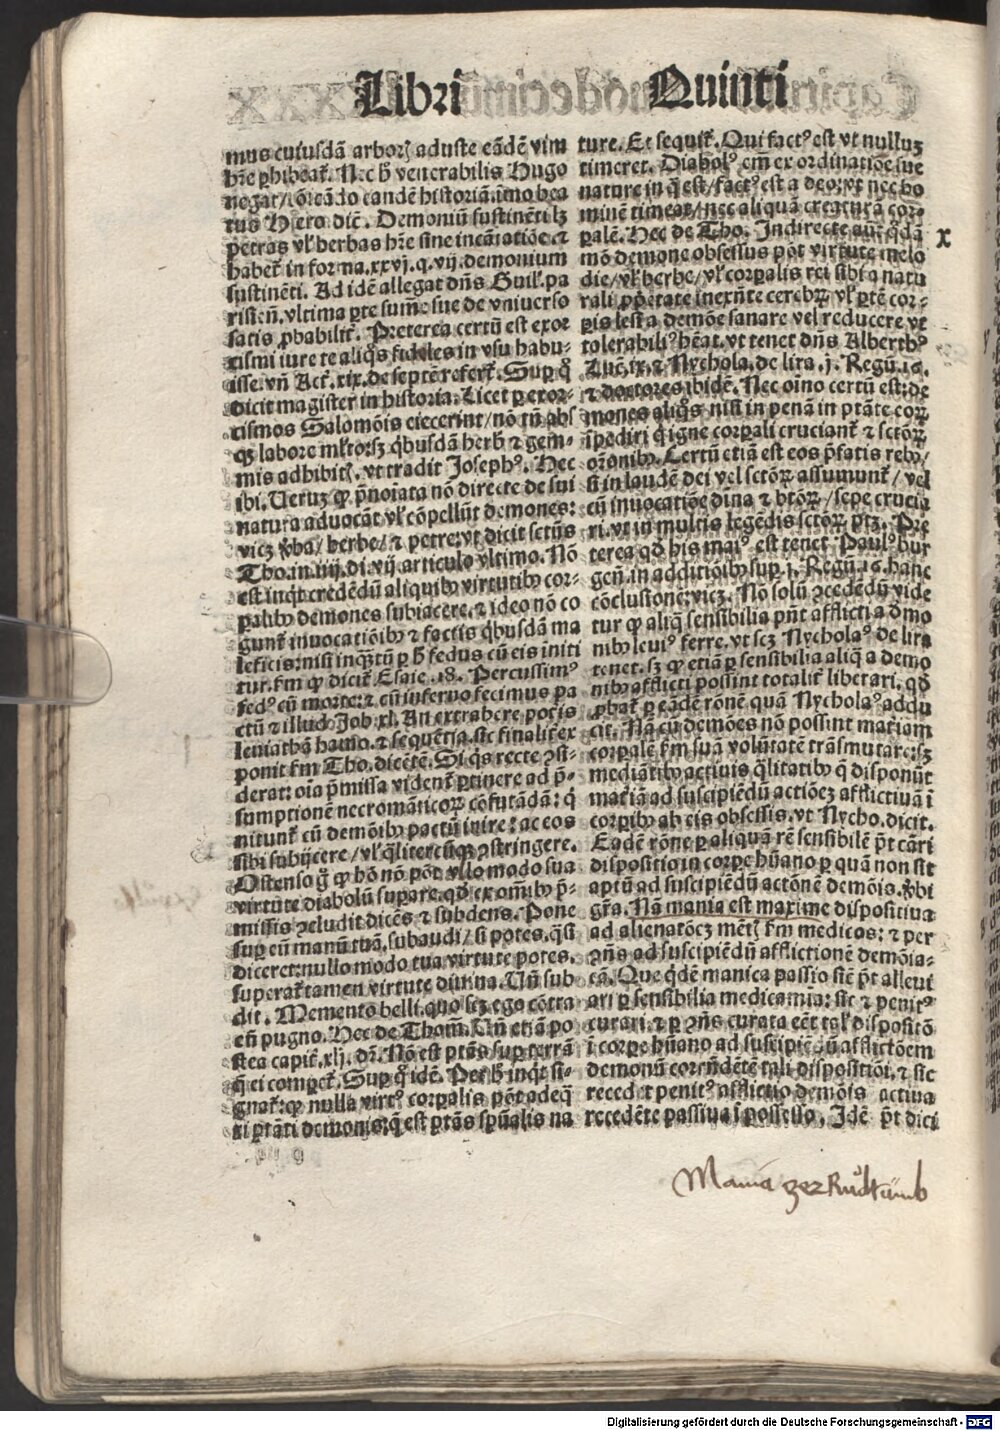 Libri Quinti
mus cuiusdā arborꝭ aduste eādē vim
hr̄e ꝓhibeat᷑. Nec h̄ venerabilis Hugo
negat/ cōreādo eandē historiā. īmo bea
tus Hiero dic̄. Demoniū sustinēti lꝫ
petras vl̓ herbas hr̄e sine incātatiōe. ⁊
habet᷑ in forma. xxvj. q. vij. demonium
sustinēti. Ad idē allegat dn̄s Guil̓. pa
risien̄. vltima ꝑte sum̄e sue de vniuerso
satis ꝓbabilit᷑. Preterea certū est exor
cismi iure te aliqͦs fideles in vsu habu-
isse. vn̄ Act᷑. xix. de septē refert᷑. Suꝑ qͦ
dicit magister in historia. Licet ꝑ exor-
cismos Salomōis eiecerint/ nō tn̄ abs
qꝫ labore ml̓to: sꝫ qͥbusdā herb̓ ⁊ gem-
mis adhibitꝭ. vt tradit Joseph⁹. Hec
ibi. Ueruꝫ ꝙ p̄noiata nō directe de sui
natura aduocāt vl̓ cōpellūt demones:
vicꝫ v̓ba/ herbe/ ⁊ petre: vt dicit sctūs
Tho. in. iiij. di. vij. articulo vltimo. Nō
est inqͥt credēdū aliquibꝰ virtutibꝰ cor-
ꝑalibꝰ demones subiacere. ⁊ ideo nō co
gunt᷑ inuocatiōibꝰ ⁊ factis qͥbusdā ma
leficis: nisi inqͣꝫtū ꝑ h̄ fedus cū eis initi
tur. f̄m ꝙ dicit᷑ Esaie. 18. Percussim⁹
fed⁹ cū morte: ⁊ cū inferno fecimus pa
ctū ⁊ illud Job. xl. An extrahere potꝭ
leuiathā hamo. ⁊ sequētia. sic finalit᷑ ex
ponit f̄m Tho. dicēte. Si qͥs recte ꝯsi-
derat: oīa p̄missa vident᷑ ꝑtinere ad p̄-
sumptionē necromāticoꝝ cōfutādā: qͥ
nitunt᷑ cū demōibꝰ pactū inire: ac eos
sibi subijcere/ vl̓ qͣlitercūqꝫ ꝯstringere.
Ostenso g̊ ꝙ hō nō pōt vllo modo sua
virtute diabolū suꝑare. qd̓ ex oīmbꝰ p̄-
missis ꝯcludit dicēs ⁊ subdens. Pone
suꝑ eū manū tuā. subaudi/ si potes. qͣsi
diceret: nullo modo tua virtute potes.
superat᷑ tamen virtute diuina. Un̄ sub
dit. Memento belli. quo scꝫ ego cōtra
eū pugno. Hec de Thom̄. Un̄ etiā po
stea capit̄. xlj. dr̄. Nō est ptās suꝑ terrā
q̄ ei compet᷑. Suꝑ qͦ idē. Per h̄ inqͥt si-
gnat᷑: ꝙ nulla virt⁹ corꝑalis pōt adeq̄
ri ptāti demonis: q̄ est ptās spūalis na
ture. Et sequit᷑. Qui fact⁹ est vt nulluꝫ
timeret. Diabol⁹ em̄ ex ordinatiōe sue
nature in q̄ est/ fact⁹ est a deo: vt nec ho
minē timeat/ nec aliquā creaturā cor-
ꝑalē. Hec de Tho. Indirecte aūt qͦdā
mō demone obsessus pōt virtute melo
die/ vl̓ herbe/ vl̓ corꝑalis rei sibi a natu
rali ꝓprietate inexn̄te cerebꝝ vl̓ ꝑtē cor-
ꝑis lesā a demōe sanare vel reducere vt
tolerabili⁹ hēat. vt tenet dn̄s Alberth⁹
Luc̄. ix. ⁊ Nychola. de lira. j. Regū. 16.
⁊ doctores ibidē. Nec oīno certū est: de
mones aliqͦs nisi in penā in ptāte corꝝ
īpediri qͥ igne corꝑali cruciant᷑ ⁊ sctōꝝ
orōnibꝰ. Certū etiā est eos p̄fatis rebꝰ/
si in laudē dei vel sctōꝝ assumunt᷑/ vel
cū inuocatiōe dīna ⁊ btōꝝ/ sepe crucia
ri. vt in multis legēdis sctōꝝ ptꝫ. Pre
terea qd̓ his mai⁹ est tenet Paul⁹ bur
gen̄. in additiōibꝰ suꝑ. j. Regū. 16. hanc
cōclusionē: vicꝫ. Nō solū ꝯcedēdū vide
tur ꝙ aliq̄ sensibilia pn̄t afflicti a dmo
nibꝰ leui⁹ ferre. vt scꝫ Nychola⁹ de lira
tenet. sꝫ ꝙ etiā ꝑ sensibilia aliq̄ a demo
nibꝰ afflicti possint totalit᷑ liberari. qd̓
ꝓbat᷑ ꝑ eādē rōnē quā Nychola⁹ addu
cit. Nā cū demōes nō possint mat᷑iam
corꝑalē f̄m suā volūtatē trāsmutare: sꝫ
mediātibꝰ actiuis qͣlitatibꝰ q̄ disponūt
mat᷑iā ad suscipiēdū actiōeꝫ afflictiuā ī
corꝑibꝰ ab eis obsessis. vt Nycho. dicit.
Eadē rōne ꝑ aliquā rē sensibilē p̄t cāri
dispositio in corꝑe hūano ꝑ quā non sit
aptū ad suscipiēdū actōnē demōis. v̓bi
gr̄a. Nā mania est maxime dispositiua
ad alienatōeꝫ mētꝭ f̄m medicos: ⁊ per
ꝯn̄s ad suscipiēdū afflictionē demōia-
cā. Que qͥdē manica passio sic̄ p̄t alleui
ari ꝑ sensibilia medicamīa: sic ⁊ penit⁹
curari. ⁊ ꝑ ꝯn̄s curata eēt tal̓ dispositō
ī corꝑe hūano ad suscipiēdū afflictōem
demonū corrn̄dētē tali dispositiōi. ⁊ sic
recedet penit⁹ afflictio demōis actiua
recedēte passiua ī possesso. Idē p̄t dici
x
Mania